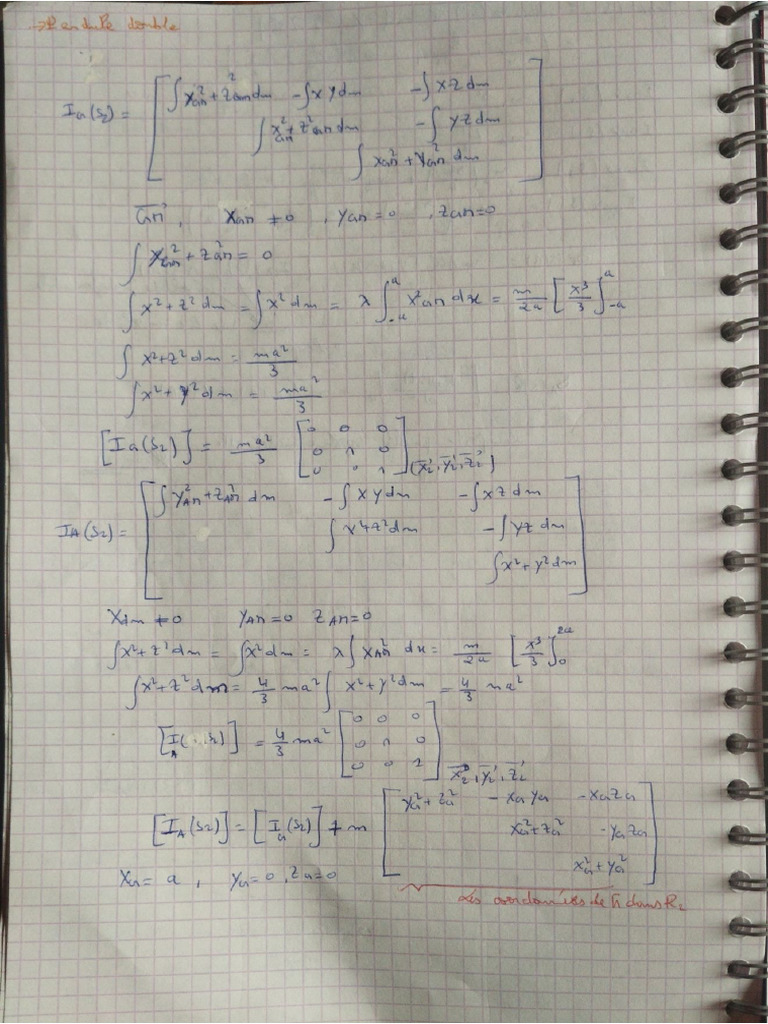 → Pendule double
I_G(S₂) = [ ∫x²_GM + z²_GM dm   -∫xydm   -∫xzdm
∫x²_GM + z²_GM dm   -∫yzdm
∫x_GM² + y_GM² dm ]
GM⃗ , x_GM ≠ 0 , y_GM = 0 , z_GM = 0
∫ x²_GM + z²_GM = 0
∫ x² + z² dm = ∫ x² dm = λ ∫_{-a}^{a} x²_GM dx = m/2a [x³/3]_{-a}^{a}
∫ x² + z² dm = ma²/3
∫ x² + y² dm = ma²/3
[I_G(S₂)] = ma²/3 [ 0 0 0
0 1 0
0 0 1 ] (x₂⃗, y₂⃗, z₂⃗)
I_A(S₂) = [ ∫y²_AM + z²_AM dm   -∫xydm   -∫xzdm
∫x²+z²dm   -∫yzdm
∫x²+y²dm ]
x_AM ≠ 0   y_AM = 0   z_AM = 0
∫x²+z²dm = ∫x²dm = λ∫x_AM² dx = m/2a [x³/3]_0^{2a}
∫x²+z²dm = 4/3 ma²   ∫x²+y²dm = 4/3 ma²
[I_A(S₂)] = 4/3 ma² [ 0 0 0
0 1 0
0 0 1 ] x₂⃗, y₂⃗, z₂⃗
[I_A(S₂)] = [I_G(S₂)] + m [ y_G² + z_G²   -x_G y_G   -x_G z_G
x_G² + z_G²   -y_G z_G
x_G² + y_G² ]
x_G = a , y_G = 0 , z_G = 0
Les coordonnées de G dans R₂